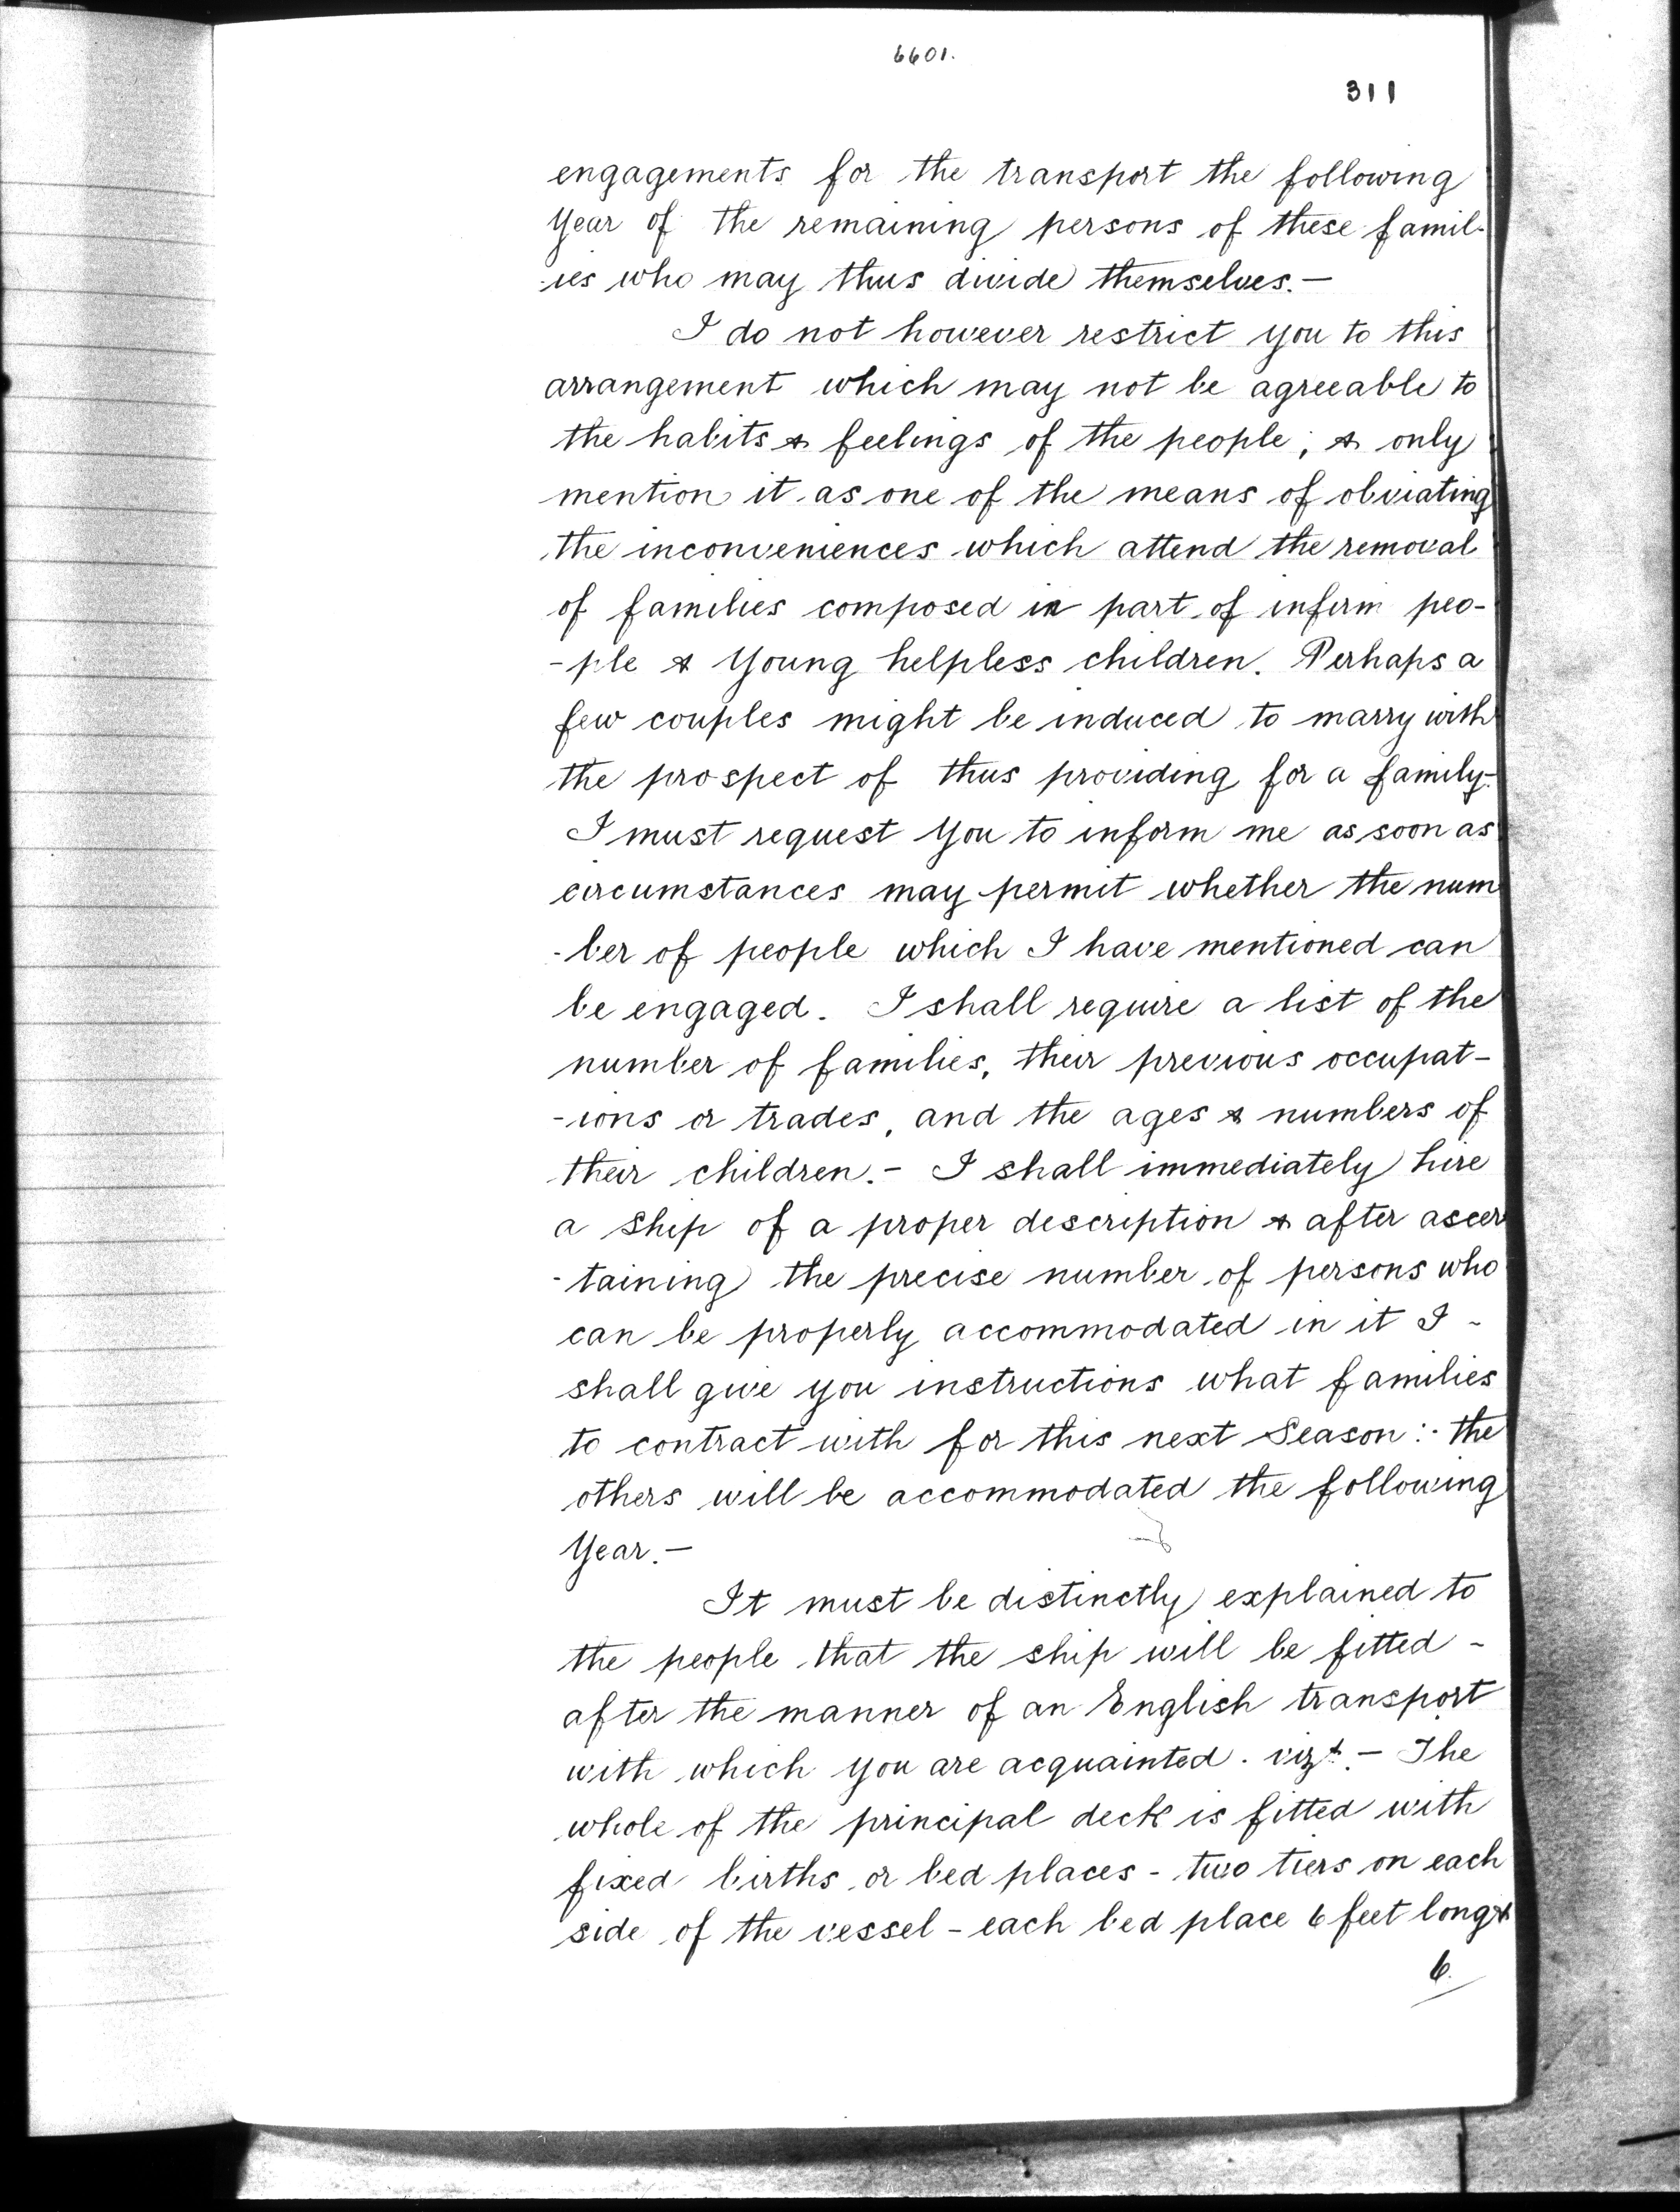 6601.
311
engagements for the transport the following
Year of the remaining persons of these famil-
-ies who may thus divide themselves.—
I do not however restrict you to this
arrangement which may not be agreeable to
the habits & feelings of the people; & only
mention it as one of the means of obviating
the inconveniences which attend the removal
of families composed in part of infirm peo-
-ple & Young helpless children. Perhaps a
few couples might be induced to marry with
the prospect of thus providing for a family-
I must request You to inform me as soon as
circumstances may permit whether the num
-ber of people which I have mentioned can
be engaged. I shall require a list of the
number of families, their previous occupat-
-ions or trades, and the ages & numbers of
their children.- I shall immediately hire
a ship of a proper description & after ascer
-taining the precise number of persons who
can be properly accommodated in it I -
shall give you instructions what families
to contract with for this next Season :- the
others will be accommodated the following
Year.—
It must be distinctly explained to
the people that the ship will be fitted -
after the manner of an English transport
with which you are acquainted. vizt.— The
whole of the principal deck is fitted with
fixed births or bed places - two tiers on each
side of the vessel - each bed place 6 feet long &
6.